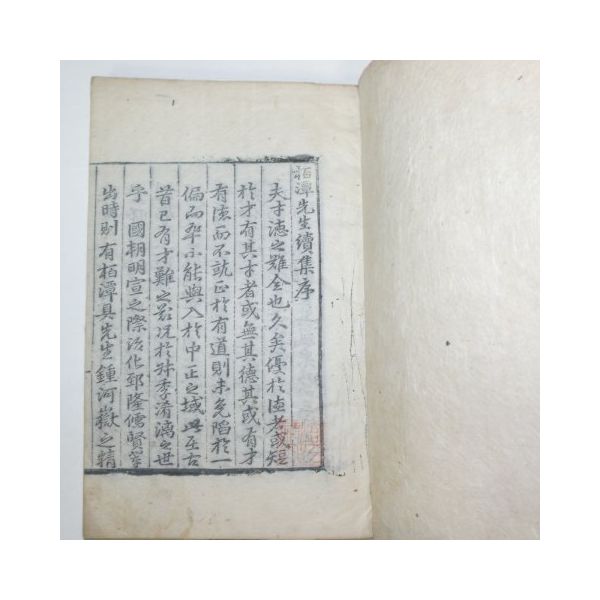 栢潭先生續集序
夫才德之難全也久矣優於德者或短
於才有其才者或無其德其或有才
有德而不就正於有道則未免陷於一
偏而卒不能與入於中正之域此在古
昔已有才難之歎况於叔季淆漓之世
乎 國朝明宣之際治化郅隆儒賢
出時則有栢潭具先生鍾河嶽之精